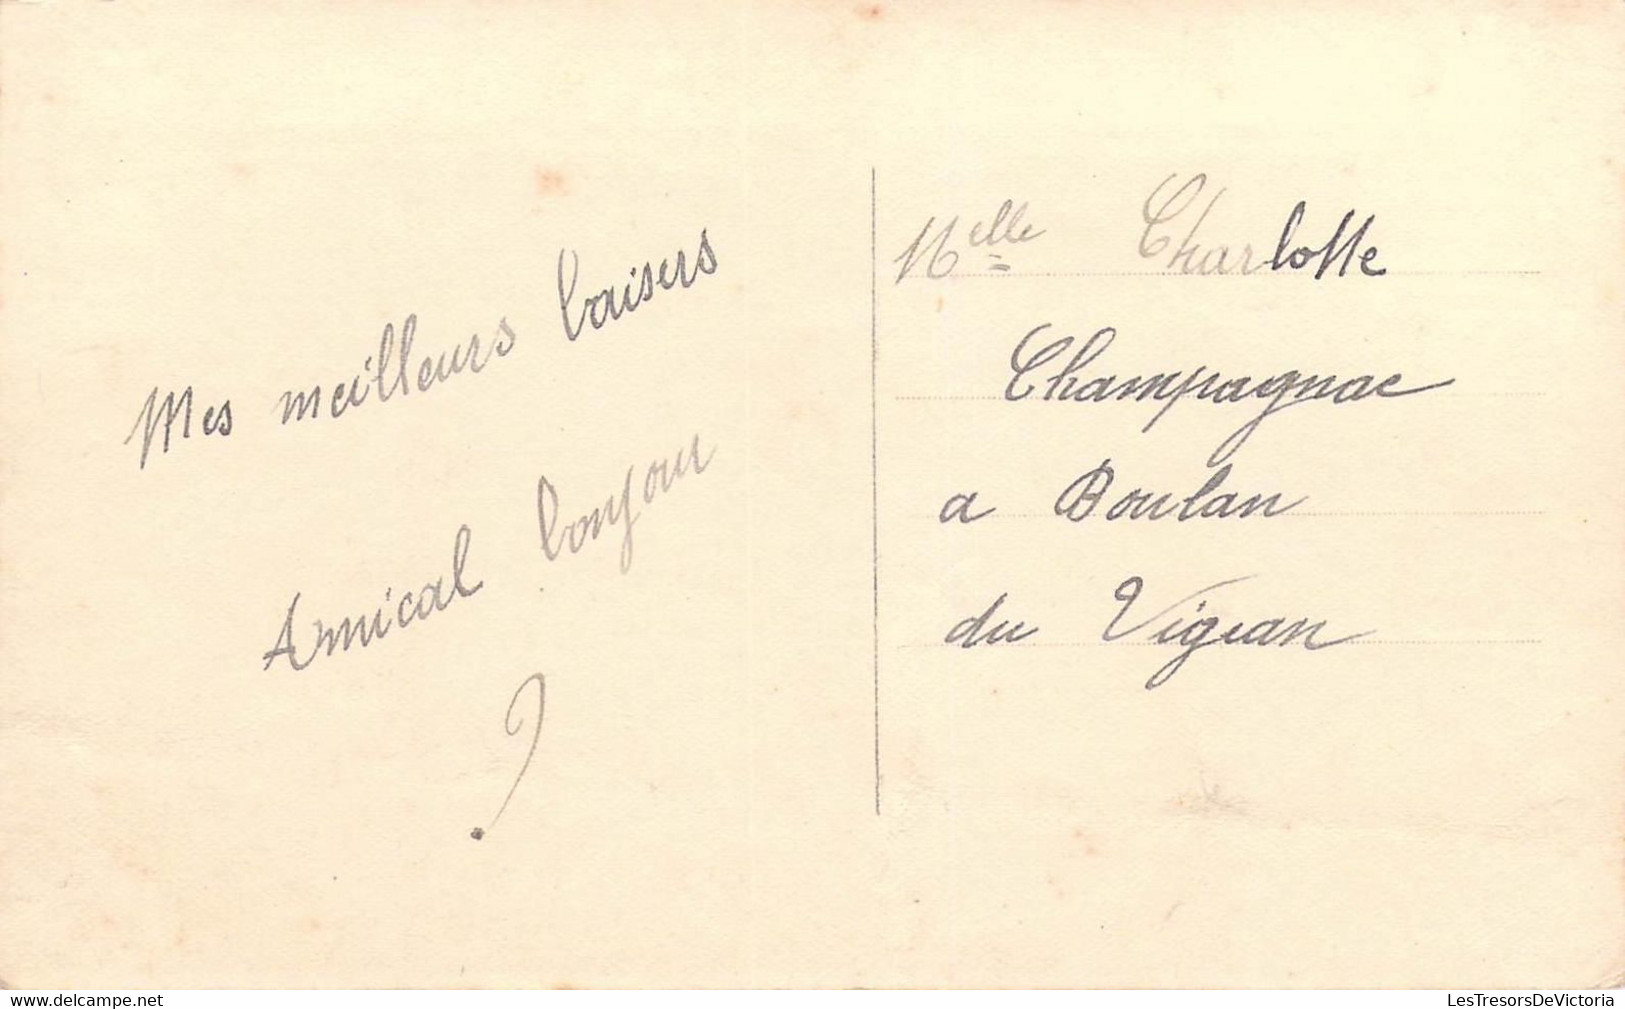 Mes meilleurs baisers
Amical bonjour
?
Melle Charlotte
Champagnac
a Boulan
du Vigean
Who's the best deal ? www.delcampe.net
LesTresorsDeVictoria